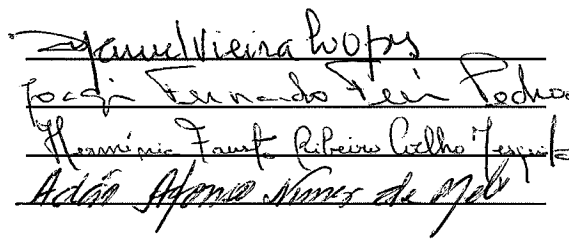 Manuel Vieira Lopes
Joaquim Fernando Pedrosa
Hermínia Fausta Ribeiro Coelho Mesquita
Adão Afonso Nunes de Melo